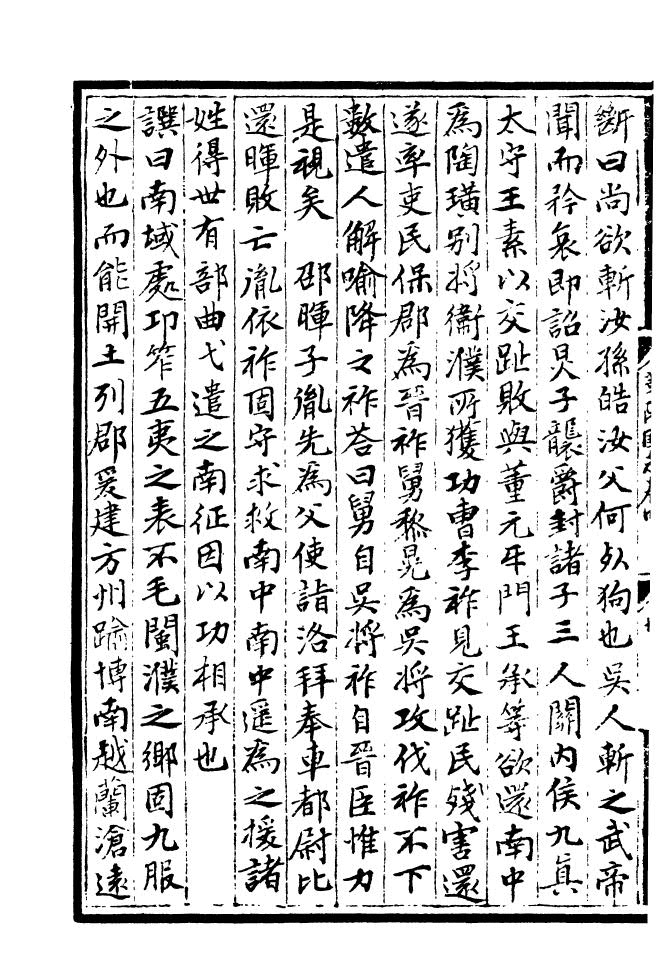 斷曰尚欲斬汝孫皓汝父何死狗也吳人斬之武帝
聞而矜哀即詔炅子襲爵封諸子三人關內侯九真
太守王素以交趾敗與董元牙門王承等欲還南中
為陶璜别將衞濮所獲功曹李祚見交趾民殘害還
遂率吏民保郡為晉祚舅黎晃為吳將攻伐祚不下
數遣人解喻降之祚荅曰舅自吳將祚自晉臣惟力
是視矣　邵暉子胤先為父使詣洛拜奉車都尉比
還暉敗亡胤依祚固守求救南中南中遥為之援諸
姓得世有部曲弋遣之南征因以功相承也
譔曰南域處邛笮五夷之表不毛閩濮之鄉固九服
之外也而能開土列郡爰建方州踰博南越蘭滄遠